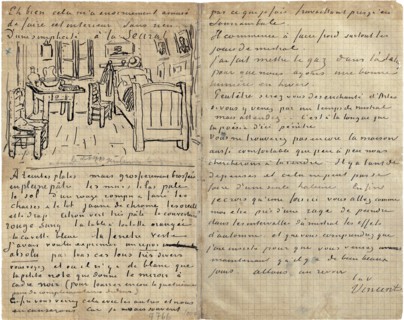 Eh bien cela m'a énormément amusé
de faire cet intérieur sans rien
D'une simplicité à la Seurat
À teintes plates mais grossièrement brossées
en pleine pâte les murs lilas pâle
le sol d'un rouge rompu & fané les
chaises & le lit jaune de chrome, les oreillers
et le drap citron vert très pâle la couverture
rouge sang la table à toilette orangée
la cuvette bleue la fenêtre verte
J'avais voulu exprimer un repos
absolu par tous ces tons très divers
vous voyez et où il n'y a de blanc que
la petite note que donne le miroir à
cadre noir (pour fourrer encore la quatrième
paire de complémentaires dedans
Enfin vous verrez cela avec les autres et nous
en causerons car je ne sais souvent
pas ce que je fais travaillant presqu'en
somnambule
Il commence à faire froid surtout les
jours de mistral
J'ai fait mettre le gaz dans l'atelier
pour que nous ayons une bonne
lumière en hiver
Peutêtre serez vous désenchanté d'Arles
si vous y venez par un temps de mistral
mais attendez c'est à la longue que
la poésia d'ici pénètre
Vous ne trouverez pas encore la maison
aussi confortable que peu à peu nous
chercherons à la rendre Il y a tant de
dépenses et cela ne peut pas se
faire d'une seule haleine Enfin
je crois qu'une fois ici vous allez comme
moi être pris d'une rage de peindre
dans les intervalles du mistral les effets
d'automne et que vous comprendrez que
j'ai insisté pour que vous veniez
maintenant qu'il y a de bien beaux
jours allons au revoir
t à v
Vincent